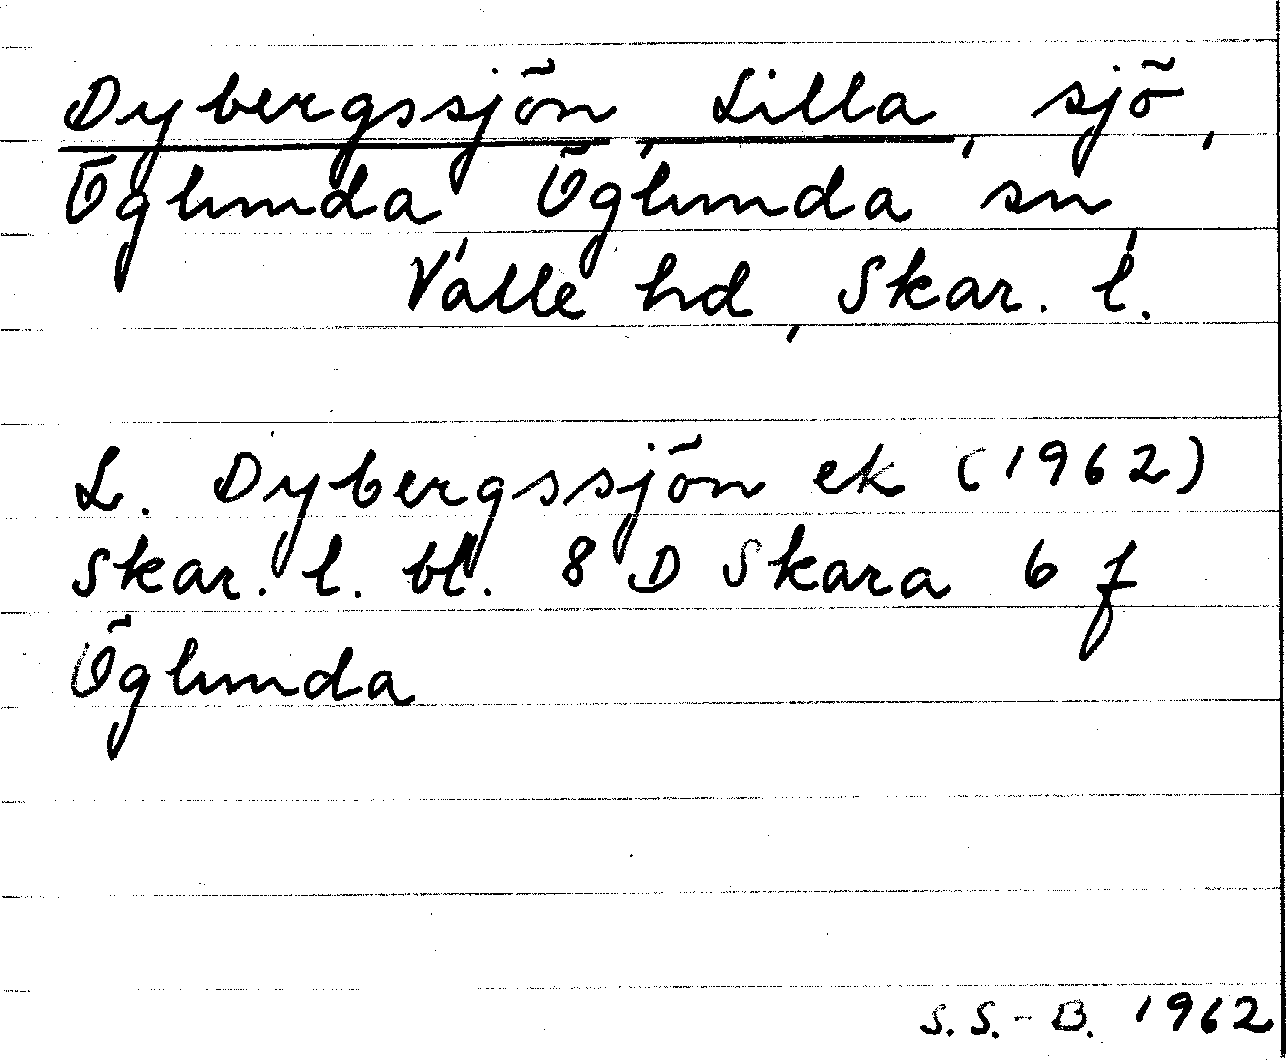 Dybergssjön, Lilla, sjö,
Öglunda, Öglunda sn,
Valle hd, Skar. l.
L. Dybergssjön ek (1962)
Skar. l. bl. 8 D Skara 6 f
Öglunda
S. S.-B. 1962